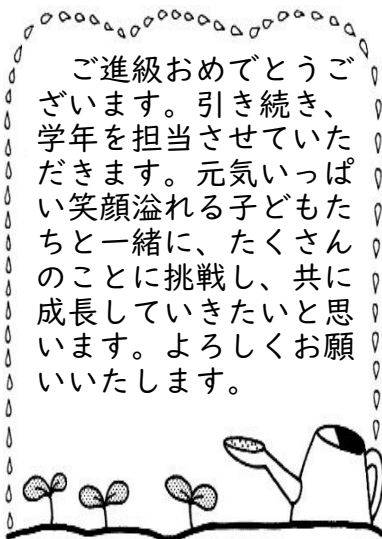 ご進級おめでとうご
ざいます。引き続き、
学年を担当させていた
だきます。元気いっぱ
い笑顔溢れる子どもた
ちと一緒に、たくさん
のことに挑戦し、共に
成長していきたいと思
います。よろしくお願
いいたします。